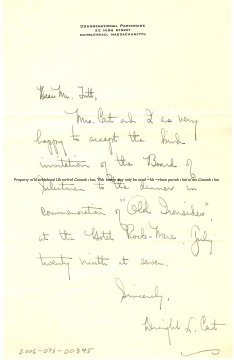 CONGREGATIONAL PARSONAGE
HIGH STREET
MARBLEHEAD, MASSACHUSETTS
Dear Mr. Tutt,
Mrs. Cart and I are very
happy to accept the kind
invitation of the Board of
Selectmen to the dinner in
commemoration of "Old Ironsides",
at the Hotel Rock-Mere, July
twenty ninth at seven.
Sincerely,
Dwight L. Cart
2006-073-00395